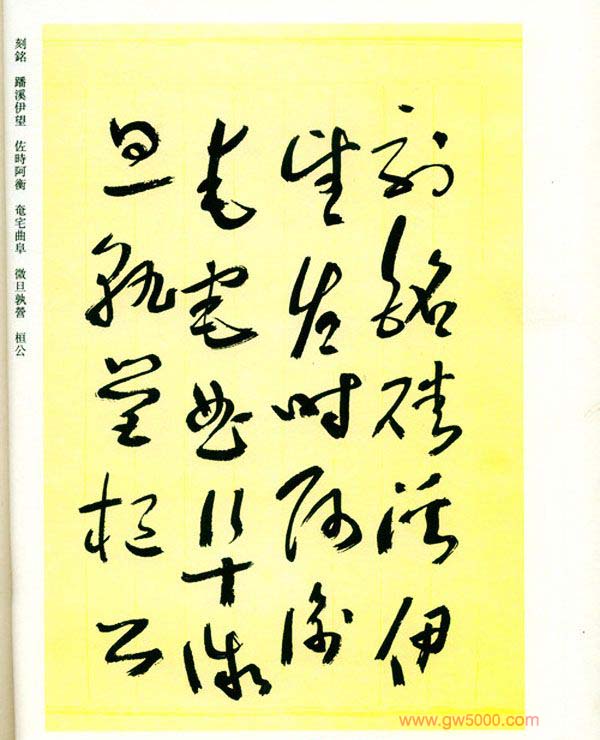 刻銘磻溪伊
望佐時阿衡
奄宅曲阜微
旦孰營桓公
刻銘 磻溪伊望 佐時阿衡 奄宅曲阜 微旦孰營 桓公
www.gw5000.com